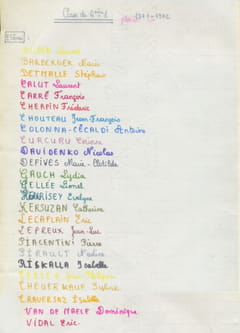 Classe de
1971-1972
BARBERGER Marie
DETMALLE Stéphan
CALUT Laurent
CARRÉ François
CHERFIN Frédéric
CHOUTEAU Jean-François
COLONNA-CECALDI Antoine
CURCURU Corinne
DAVIDENKO Nicolas
DEFIVES Marie-Clotilde
GAUCH Lydia
GELLÉE Lionel
HENRISEY Evelyne
KERSUZAN Catherine
LECAPLAIN Eric
LEPREUX Jean-Luc
PIACENTINI Pierre
PIRAULT Nadine
RISKALLA Isabelle
Philippe
THEUERKAUF Sylvie
TRAVERSAZ Isabelle
VAN DE MAELE Dominique
VIDAL Eric